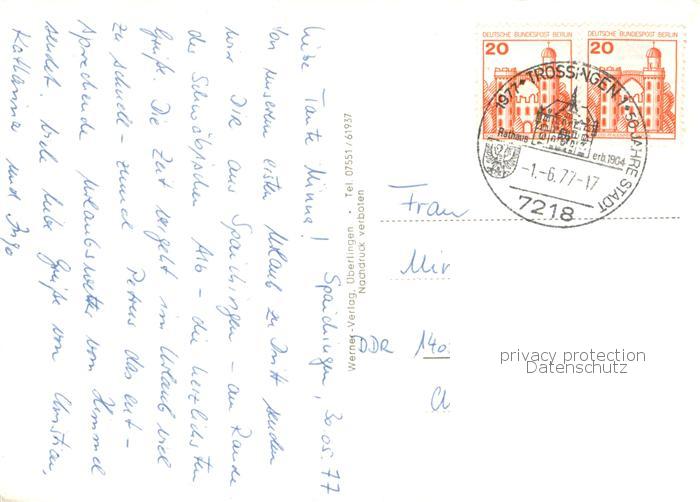 Spaichingen, 30.05.77
Liebe Tante Minna!
Von unserem ersten Urlaub zu Dritt senden
wir Dir aus Spaichingen - am Rande
der Schwäbischen Alb - die herzlichsten
Grüße. Die Zeit vergeht im Urlaub viel
zu schnell - zumal Petrus das ent-
sprechende Urlaubswetter vom Himmel
sendet. Viele liebe Grüße von Christian,
Katharina und Ingo
Werner-Verlag, Überlingen • Tel. 07551/61937
Nachdruck verboten
DEUTSCHE BUNDESPOST BERLIN
20
DEUTSCHE BUNDESPOST BERLIN
20
1977 • TROSSINGEN • 50 JAHRE STADT
Rathaus erb. 1904
-1.-6.77-17
7218
Frau
Mir
DDR 140
privacy protection
Datenschutz